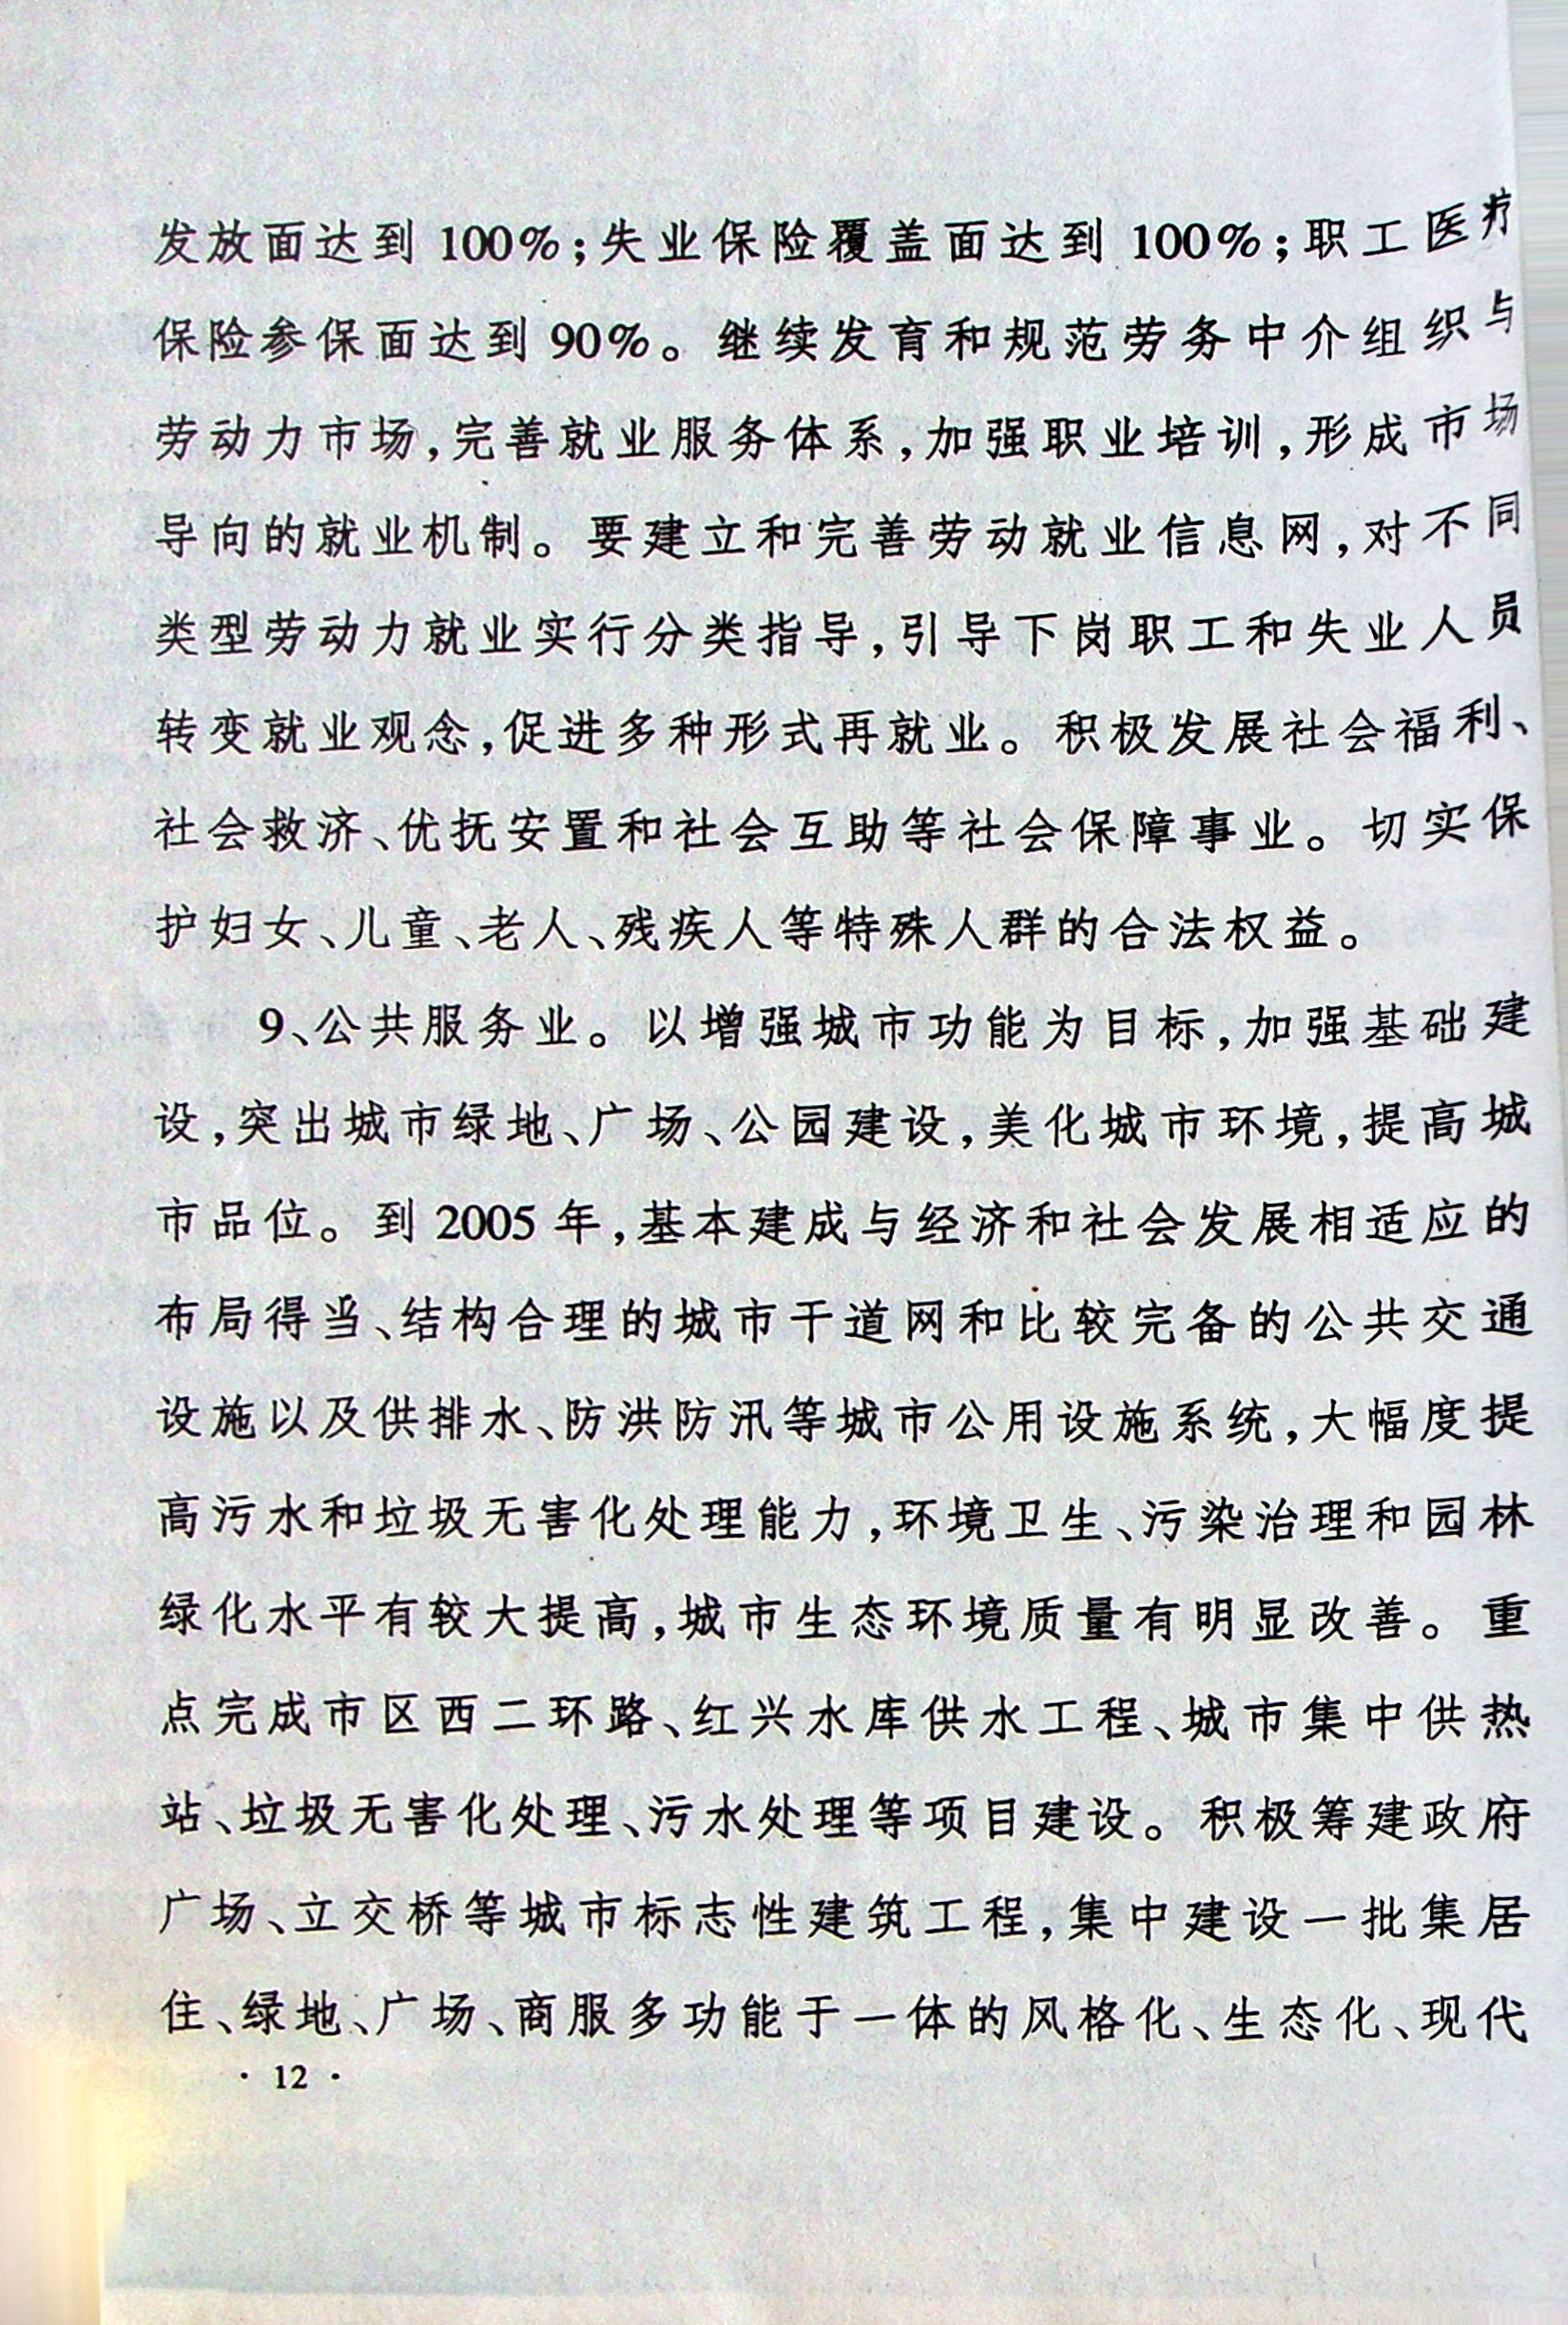 发放面达到 100%;失业保险覆盖面达到 100%;职工医疗
保险参保面达到 90%。继续发育和规范劳务中介组织与
劳动力市场,完善就业服务体系,加强职业培训,形成市场
导向的就业机制。要建立和完善劳动就业信息网,对不同
类型劳动力就业实行分类指导,引导下岗职工和失业人员
转变就业观念,促进多种形式再就业。积极发展社会福利、
社会救济、优抚安置和社会互助等社会保障事业。切实保
护妇女、儿童、老人、残疾人等特殊人群的合法权益。
9、公共服务业。以增强城市功能为目标,加强基础建
设,突出城市绿地、广场、公园建设,美化城市环境,提高城
市品位。到 2005 年,基本建成与经济和社会发展相适应的
布局得当、结构合理的城市干道网和比较完备的公共交通
设施以及供排水、防洪防汛等城市公用设施系统,大幅度提
高污水和垃圾无害化处理能力,环境卫生、污染治理和园林
绿化水平有较大提高,城市生态环境质量有明显改善。重
点完成市区西二环路、红兴水库供水工程、城市集中供热
站、垃圾无害化处理、污水处理等项目建设。积极筹建政府
广场、立交桥等城市标志性建筑工程,集中建设一批集居
住、绿地、广场、商服多功能于一体的风格化、生态化、现代
· 12 ·